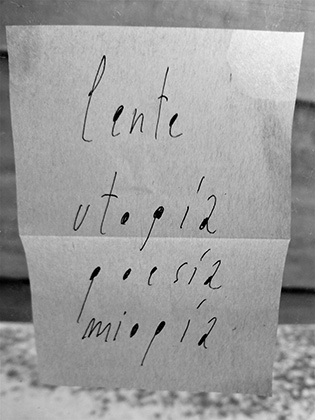 lente
utopía
poesía
miopía